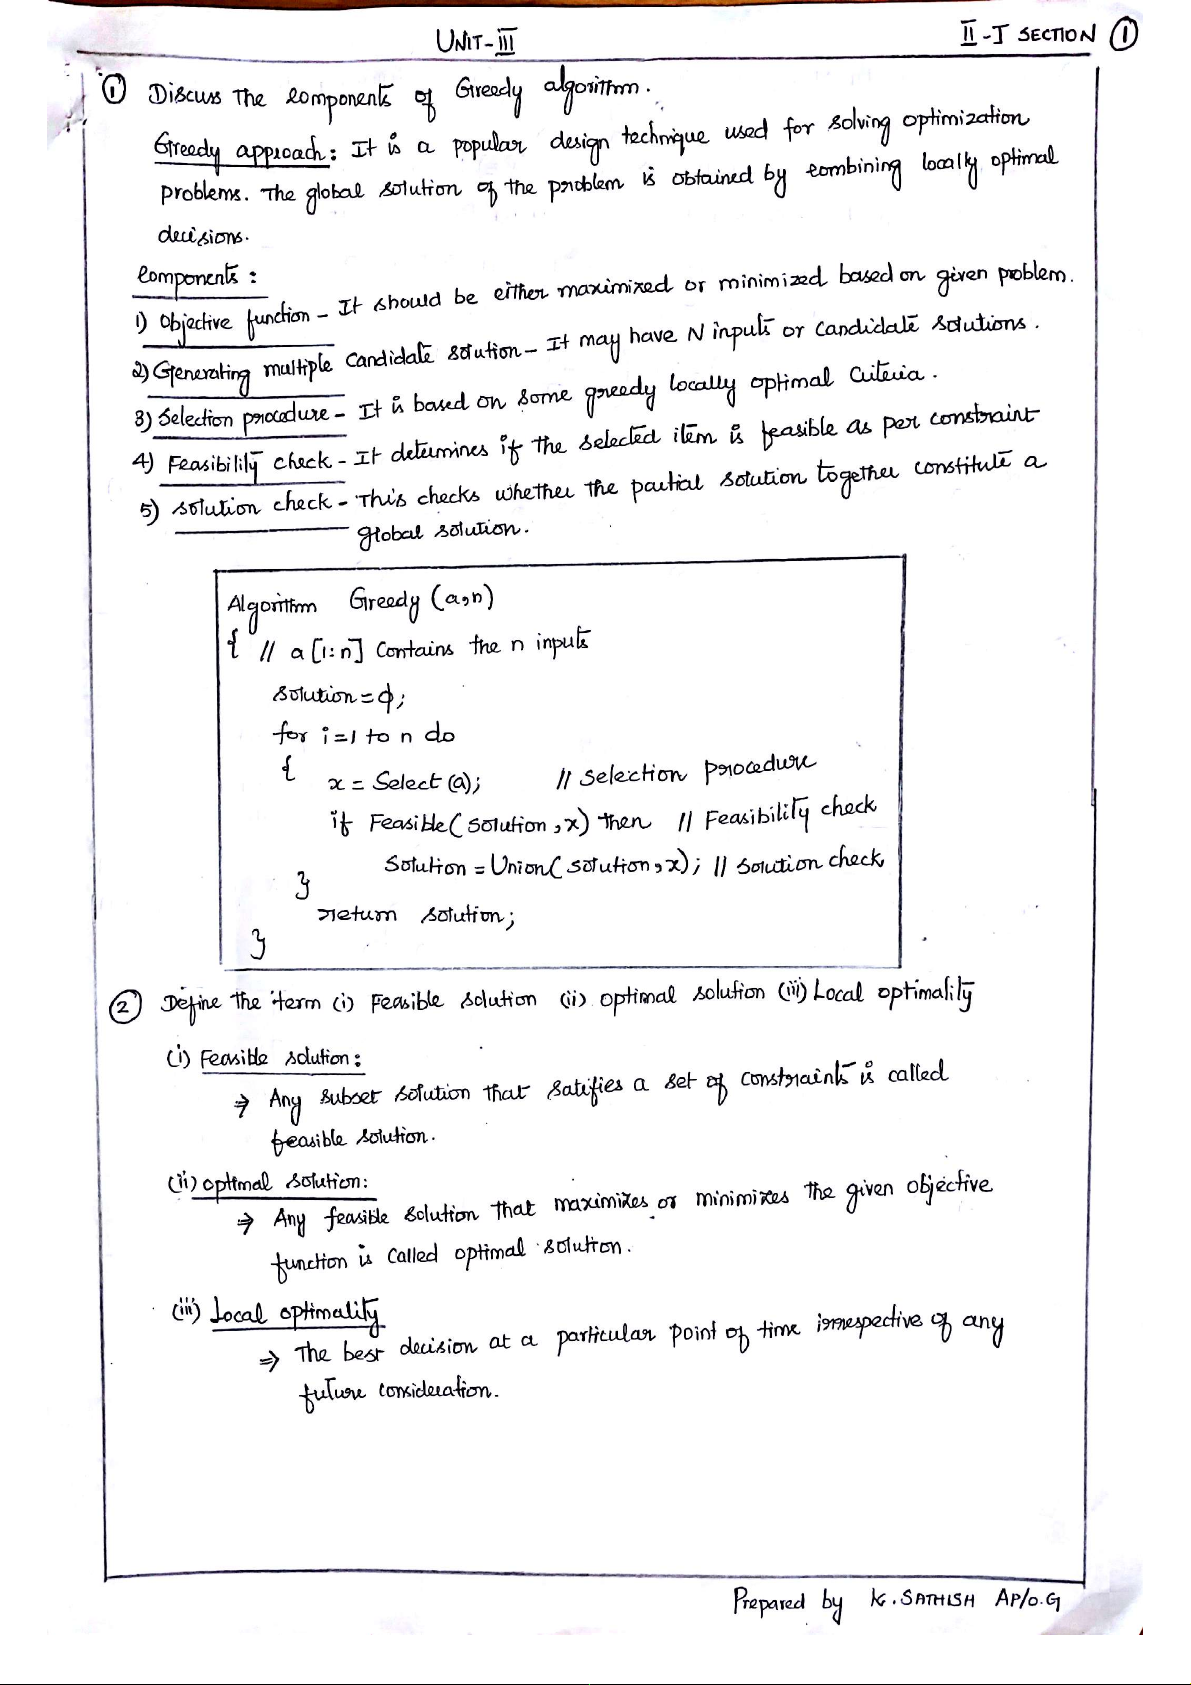 UNIT-III
II-J SECTION 1
1 Discuss The components of Greedy algorithm.
Greedy approach: It is a popular design technique used for solving optimization
problems. The global solution of the problem is obtained by combining locally optimal
decisions.
Components:
1) Objective function - It should be either maximized or minimized based on given problem.
2) Generating multiple Candidate solution - It may have N inputs or Candidate Solutions.
3) Selection procedure - It is based on some greedy locally optimal Criteria.
4) Feasibility check - It determines if the selected item is feasible as per constraint
5) solution check - This checks whether the partial solution together constitute a
global solution.
Algorithm Greedy (a,n)
{ // a[1:n] Contains the n inputs
solution = ϕ;
for i=1 to n do
{ x = Select (a); // Selection procedure
if Feasible(solution,x) then // Feasibility check
Solution = Union(solution,x); // Solution check
}
return solution;
}
2 Define the term (i) Feasible solution (ii) optimal solution (iii) Local optimality
(i) Feasible solution:
⇒ Any subset solution that satifies a set of constraints is called
feasible solution.
(ii) optimal solution:
⇒ Any feasible solution that maximizes or minimizes the given objective
function is called optimal solution.
(iii) Local optimality
⇒ The best decision at a particular point of time irrespective of any
future consideration.
Prepared by K. SATHISH AP/O.G